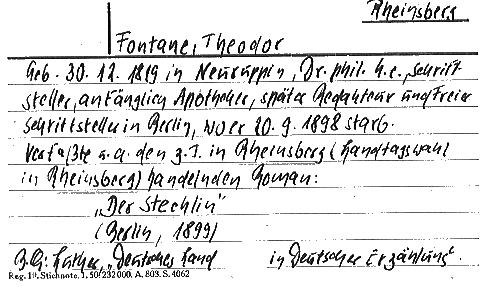 Rheinsberg
Fontane, Theodor
Geb. 30. 12. 1819 in Neuruppin, Dr. phil. h.c., Schrift-
steller, anfänglich Apotheker, später Redakteur und freier
Schriftsteller in Berlin, wo er 20. 9. 1898 starb.
Verfaßte u. a. den z. T. in Rheinsberg (Landtagswahl
in Rheinsberg) handelnden Roman:
„Der Stechlin"
(Berlin, 1899)
„Deutsches Land in Deutscher Erzählung".
Reg. Stichnote, 1, 50/232000. A. 803. S. 4062